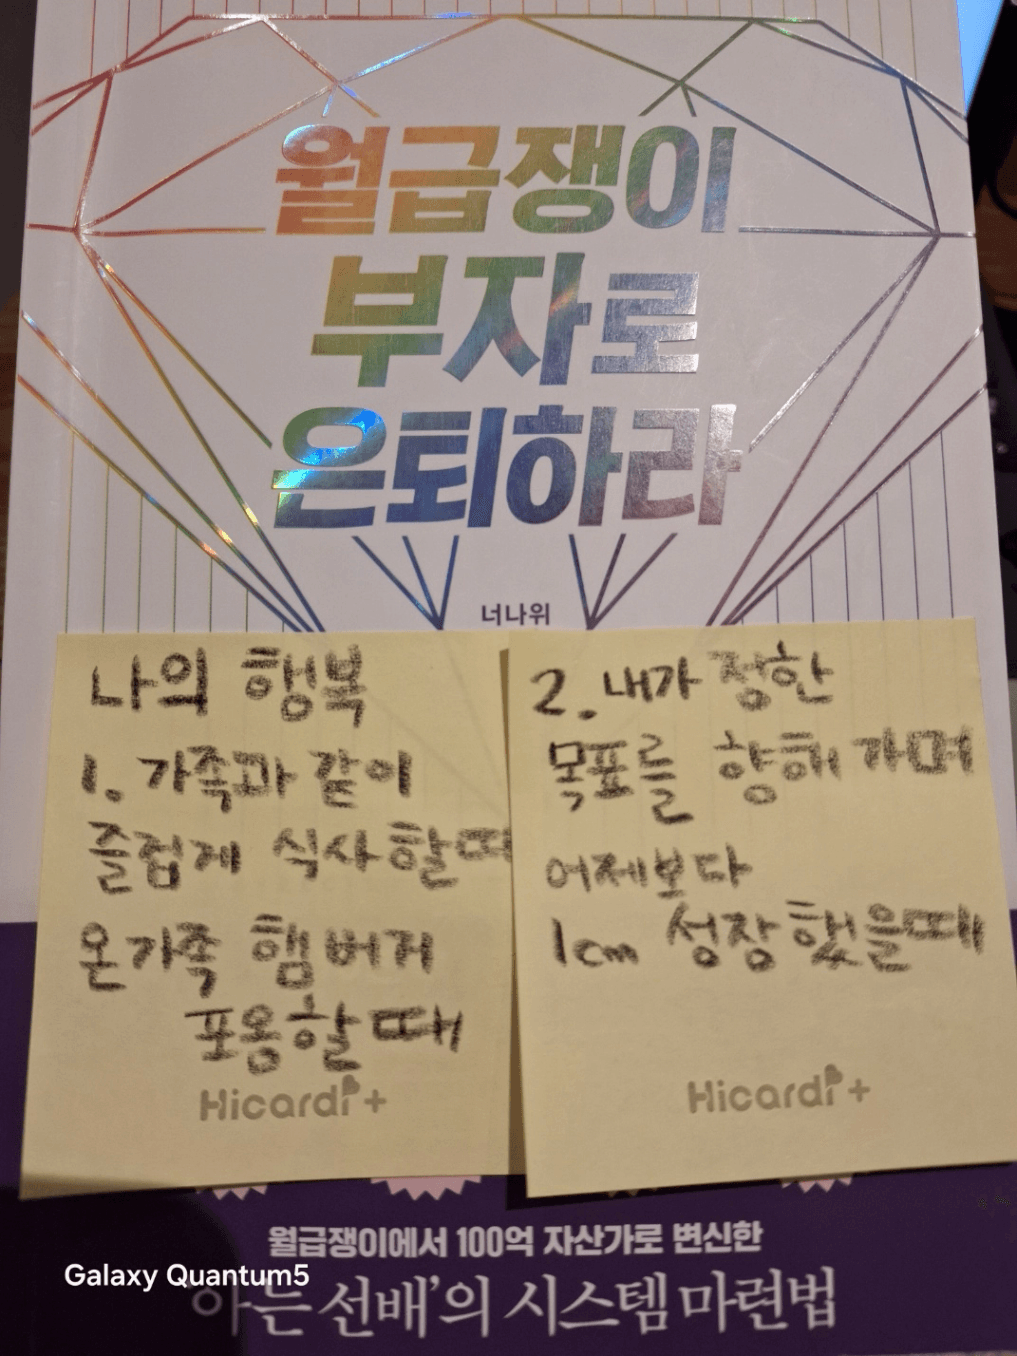 월급쟁이
부자로
은퇴하라
너나위
나의 행복
1. 가족과 같이
즐겁게 식사 할때
온가족 햄버거
포옹할때
Hicardi+
2. 내가 정한
목표를 향해 가며
어제보다
1cm 성장했을때
Hicardi+
월급쟁이에서 100억 자산가로 변신한
선배'의 시스템 마련법
Galaxy Quantum5